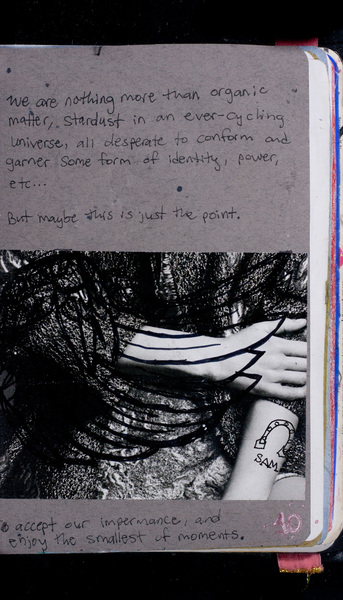 We are nothing more than organic
matter, stardust in an ever-cycling
universe, all desperate to conform and
garner some form of identity, power,
etc...
But maybe this is just the point.
SAM
accept our impermance, and
enjoy the smallest of moments.